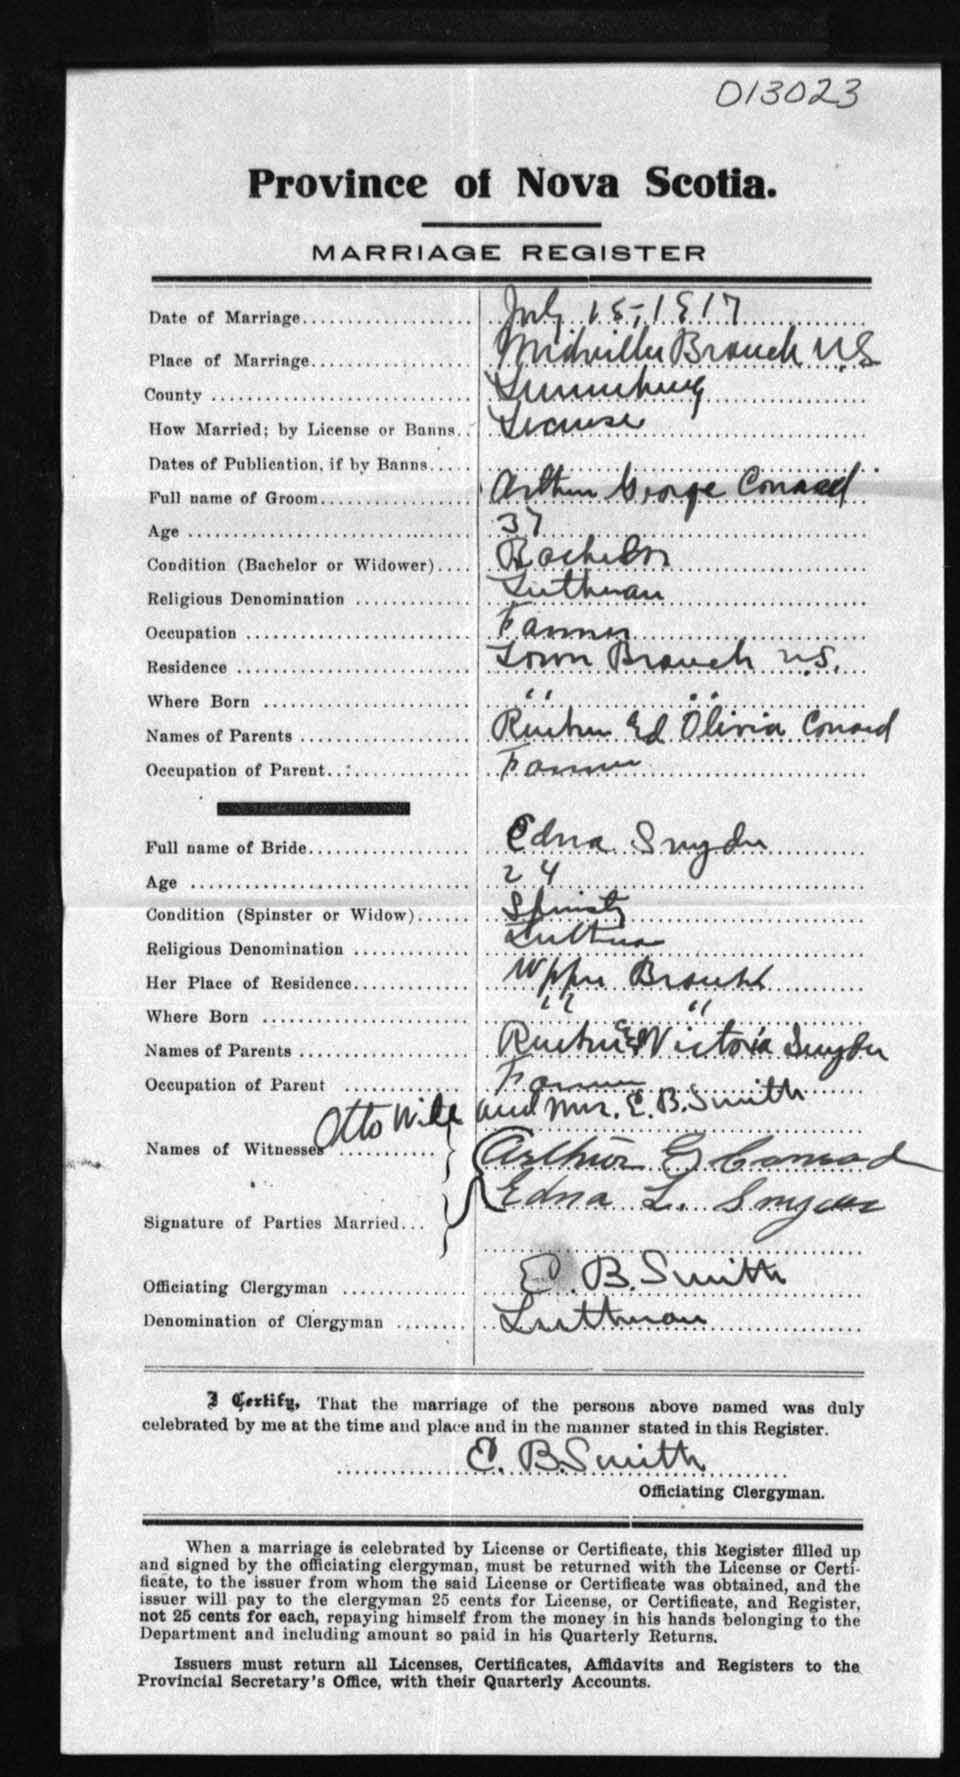 013023
Province of Nova Scotia.
MARRIAGE REGISTER
Date of Marriage July 18, 1917
Place of Marriage Midville Branch N.S.
County Lunenburg
How Married; by License or Banns License
Dates of Publication, if by Banns
Full name of Groom Arthur George Conrad
Age 37
Condition (Bachelor or Widower) Bachelor
Religious Denomination Lutheran
Occupation Farmer
Residence Town Branch N.S.
Where Born " "
Names of Parents Reuben Ed Olivia Conrad
Occupation of Parent Farmer
Full name of Bride Edna Snyder
Age 24
Condition (Spinster or Widow) Spinster
Religious Denomination Lutheran
Her Place of Residence Upper Branch
Where Born " "
Names of Parents Reuben Ed Victoria Snyder
Occupation of Parent Farmer
Otto Wile and Mrs. E. B. Smith
Names of Witnesses Arthur G Conrad
Edna L. Snyder
Signature of Parties Married
Officiating Clergyman E. B. Smith
Denomination of Clergyman Lutheran
I Certify, That the marriage of the persons above named was duly
celebrated by me at the time and place and in the manner stated in this Register.
E. B. Smith
Officiating Clergyman.
When a marriage is celebrated by License or Certificate, this Register filled up
and signed by the officiating clergyman, must be returned with the License or Certi-
ficate, to the issuer from whom the said License or Certificate was obtained, and the
issuer will pay to the clergyman 25 cents for License, or Certificate, and Register,
not 25 cents for each, repaying himself from the money in his hands belonging to the
Department and including amount so paid in his Quarterly Returns.
Issuers must return all Licenses, Certificates, Affidavits and Registers to the
Provincial Secretary's Office, with their Quarterly Accounts.